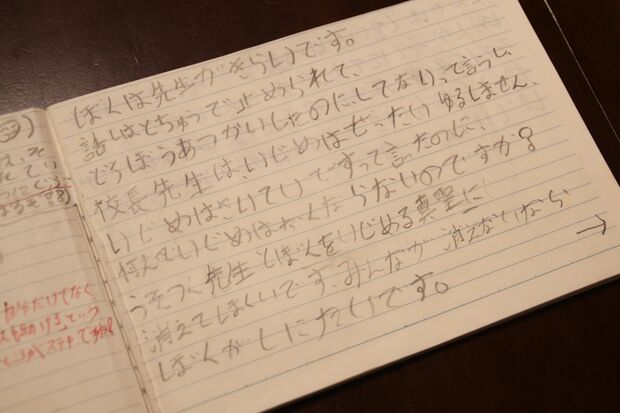 ぼくは先生がきらいです。
話しはとちゅうで止められて、
どろぼうあつかいしたのに、してないって言うし、
校長先生は、いじめはぜったいゆるしません、
いじめはさいていですって言ったのに、
何んでいじめはなくならないのですか？
うそつく先生とぼくをいじめる真
消えてほしいです、みんなが消えないなら
ぼくがしにたいです。
→
自分だけでなく